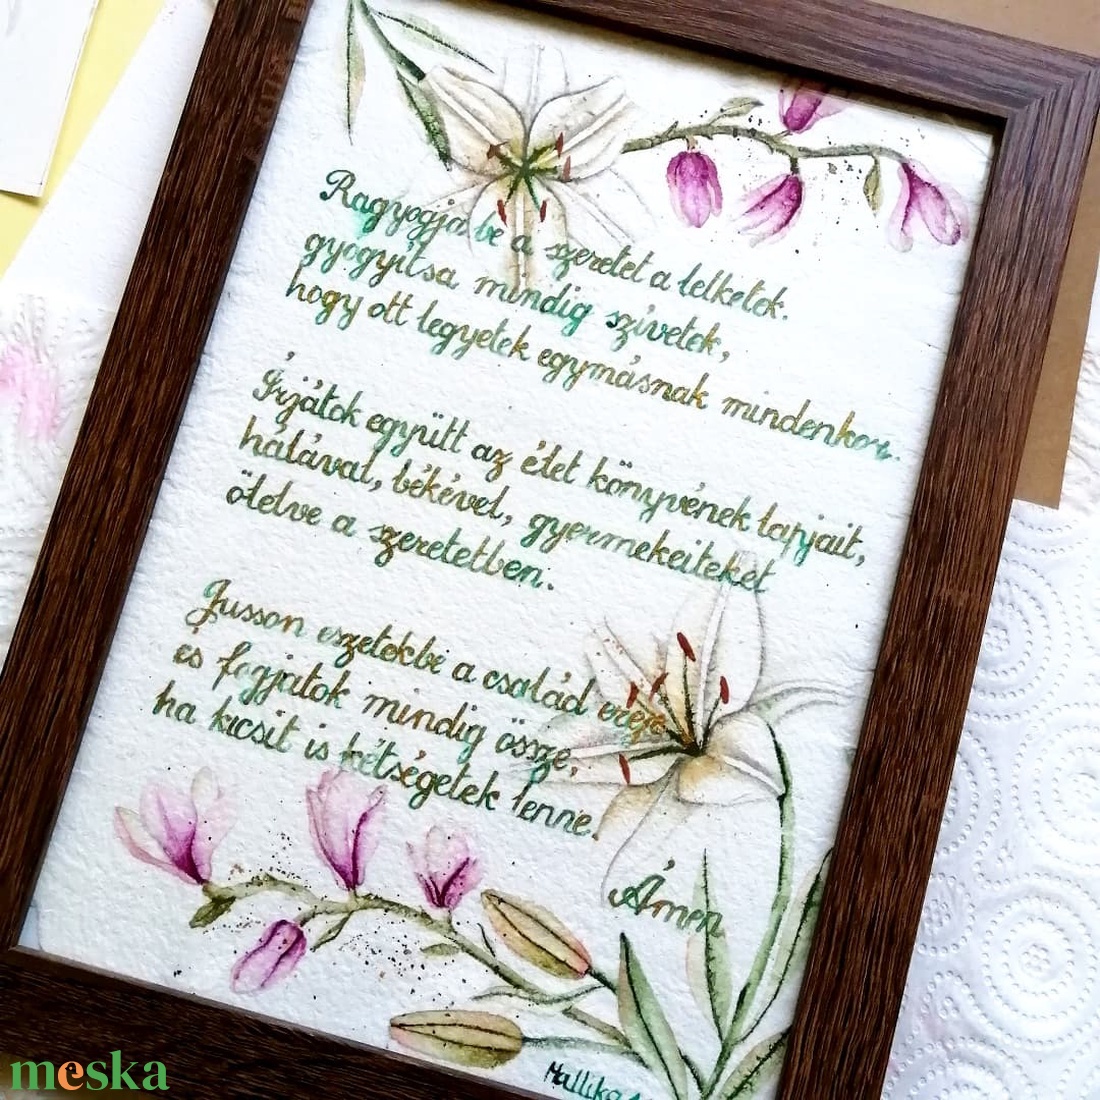 Ragyogja be a szeretet a lelketek.
gyógyítsa mindig szívetek,
hogy ott legyetek egymásnak mindenkor.
Írjátok együtt az élet könyvének lapjait,
hálával, békével, gyermekeiteket
ölelve a szeretetben.
Jusson eszetekbe a család ereje
és fogjatok mindig össze,
ha kicsit is kétségetek lenne.
Ámen
meska